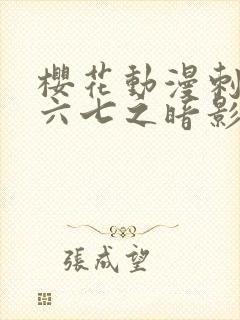 櫻花動漫刺
六七之暗影
張成望